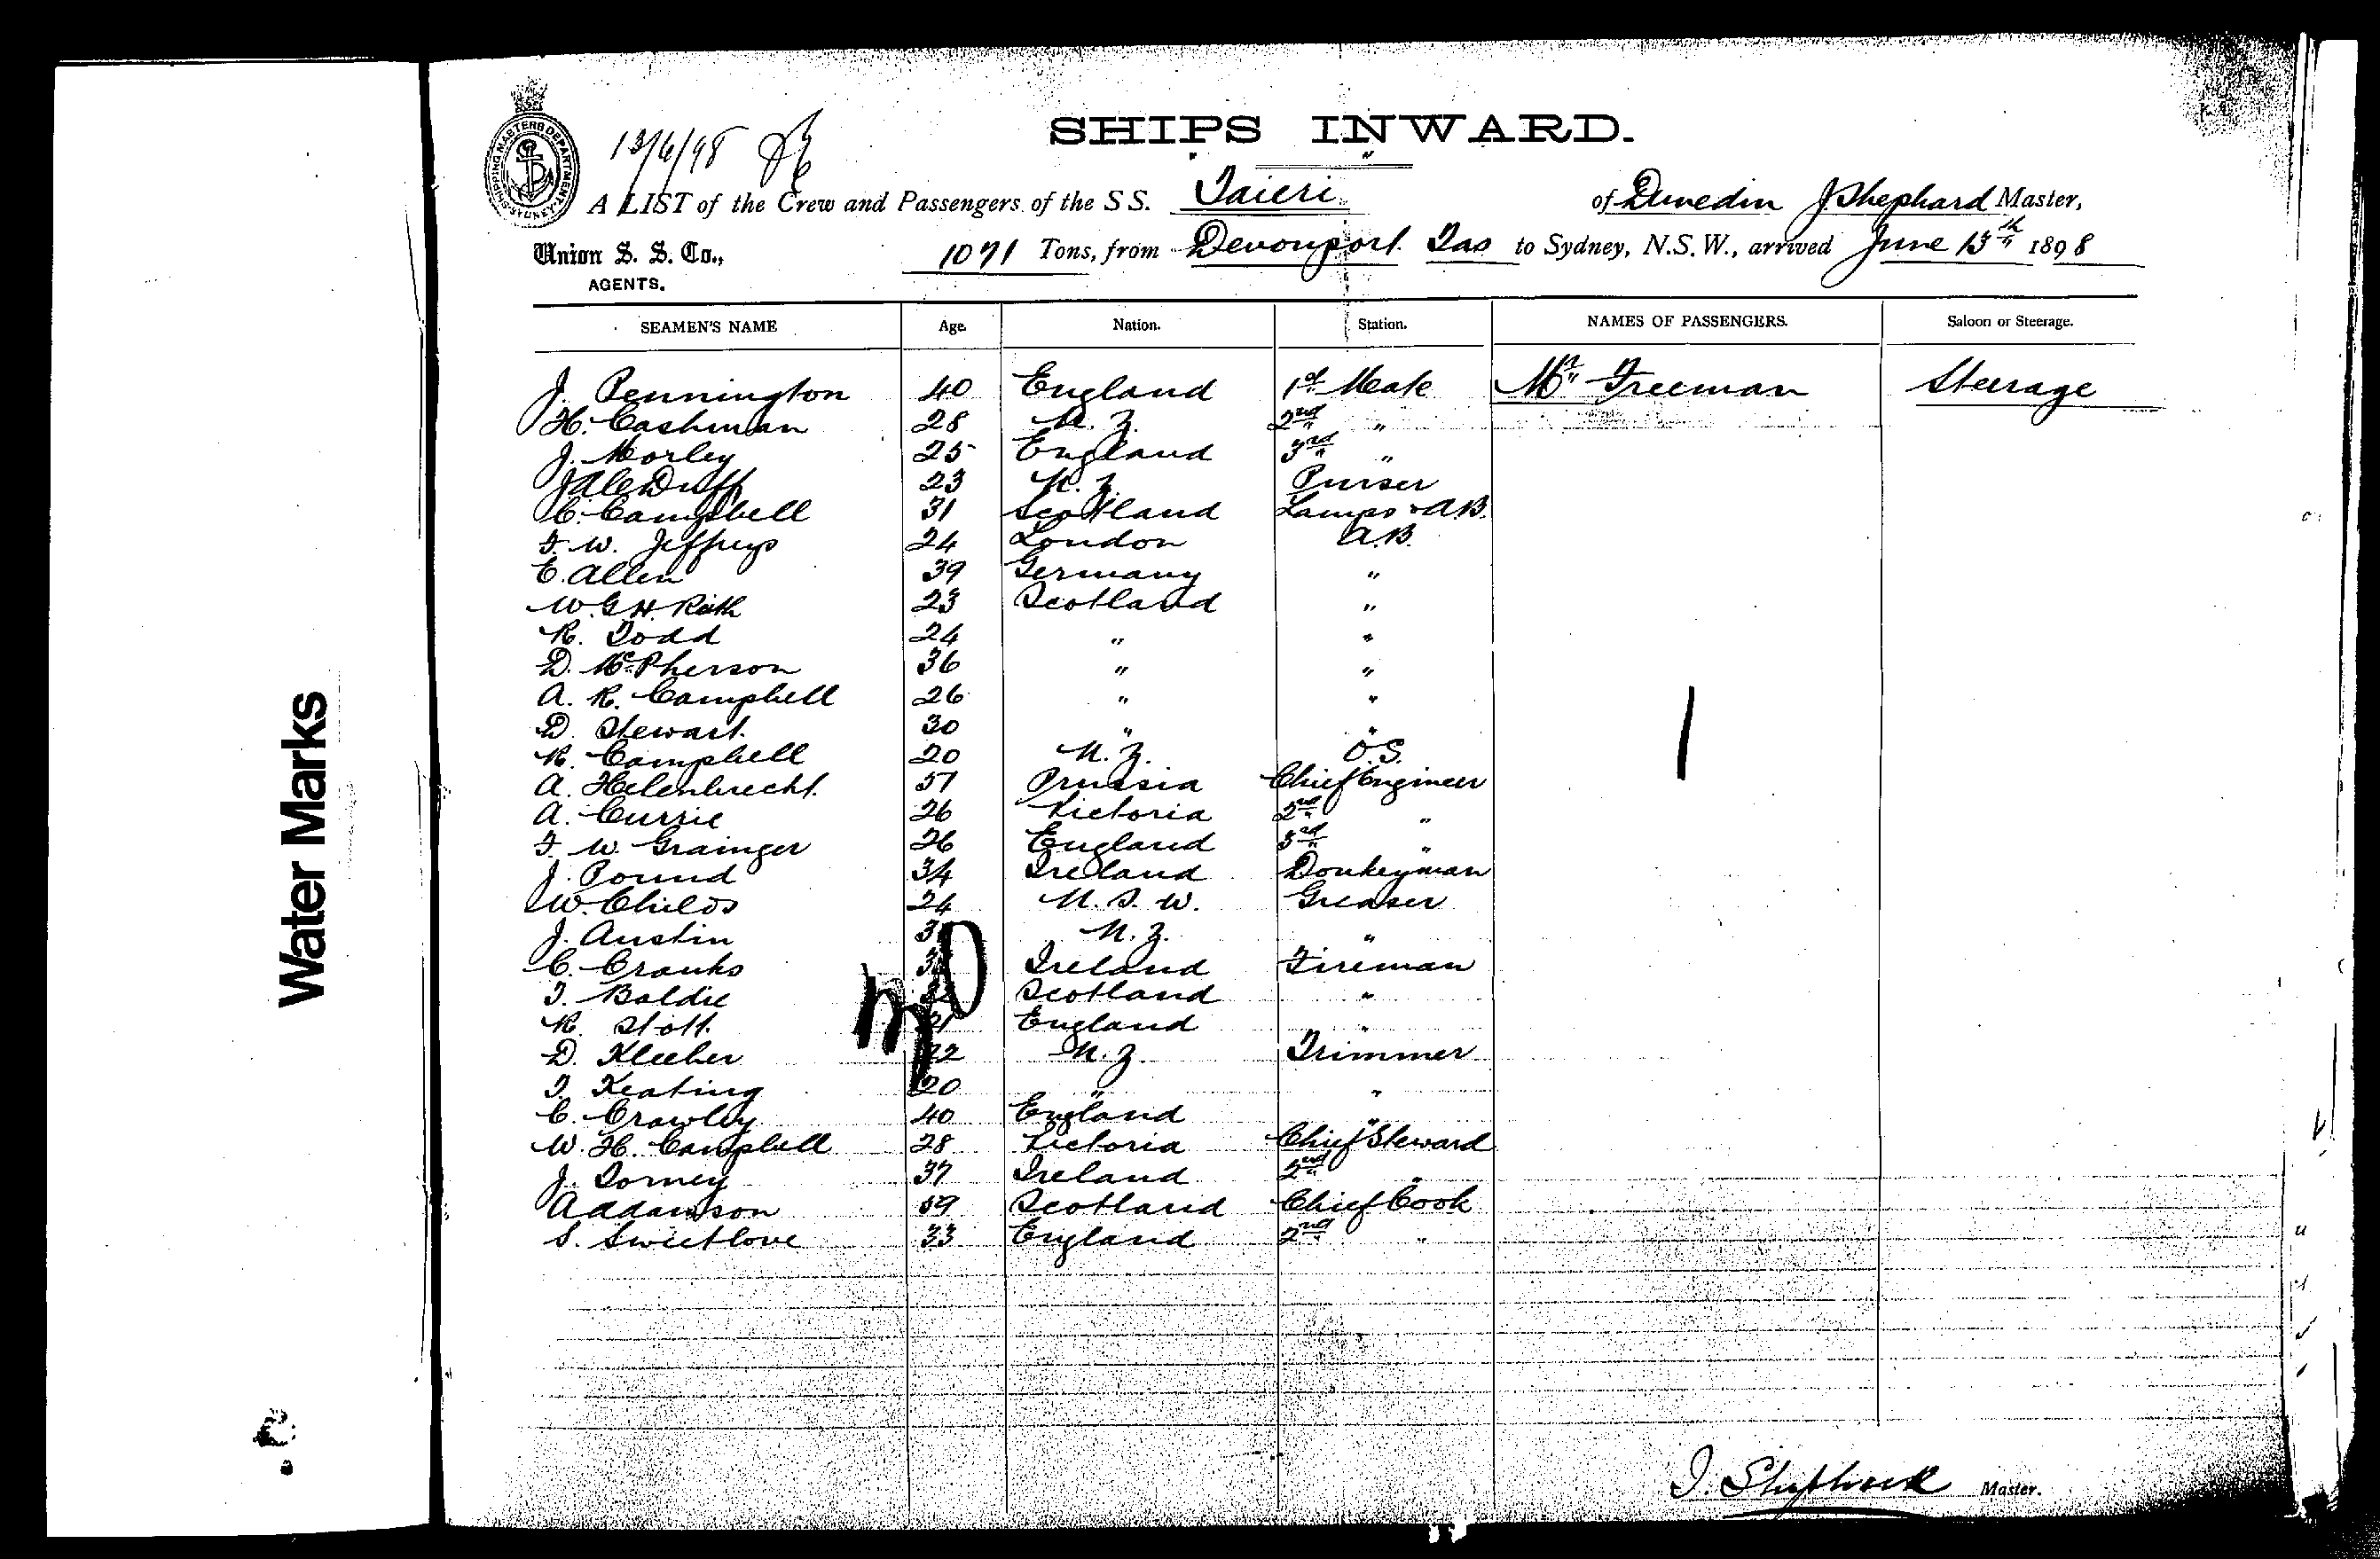 SHIPPING MASTERS DEPARTMENT SYDNEY
13/6/98
SHIPS INWARD.
A LIST of the Crew and Passengers of the S S. Taieri of Dunedin J Shephard Master,
Union S. S. Co., 1071 Tons, from Devonport Tas to Sydney, N.S.W., arrived June 13th 1898
AGENTS.
SEAMEN'S NAME Age. Nation. Station. NAMES OF PASSENGERS. Saloon or Steerage.
J. Pennington 40 England 1st Mate Mr Freeman Steerage
H. Cashman 28 N. Z. 2nd "
J. Morley 25 England 3rd "
Duff 23 N. Z. Purser
C. Campbell 31 Scotland Lamps & A.B.
F. W. Jeffreys 24 London A.B.
E. Allen 39 Germany "
W. G. H. Rath 23 Scotland "
R. Todd 24 " "
D. McPherson 36 " "
A. R. Campbell 26 " "
D. Stewart. 30 " "
R. Campbell 20 N. Z. O.S.
A. Helenbrecht. 57 Prussia Chief Engineer
A. Currie 26 Victoria 2nd "
F. W. Grainger 26 England 3rd "
J. Pound 34 Ireland Donkeyman
W. Childs 24 N. S. W. Greaser
J. Austin N. Z. "
C. Cranks Ireland Fireman
T. Baldie Scotland "
R. Stott. 21 England "
D. Kleeber 22 N. Z. Trimmer
T. Keating 20 " "
C. Crawley 40 England "
W. H. Campbell 28 Victoria Chief Steward
J. Dorney 37 Ireland 2nd "
A Adamson 59 Scotland Chief Cook
S. Sweetlove 33 England 2nd "
J. Shephard Master.
Water Marks